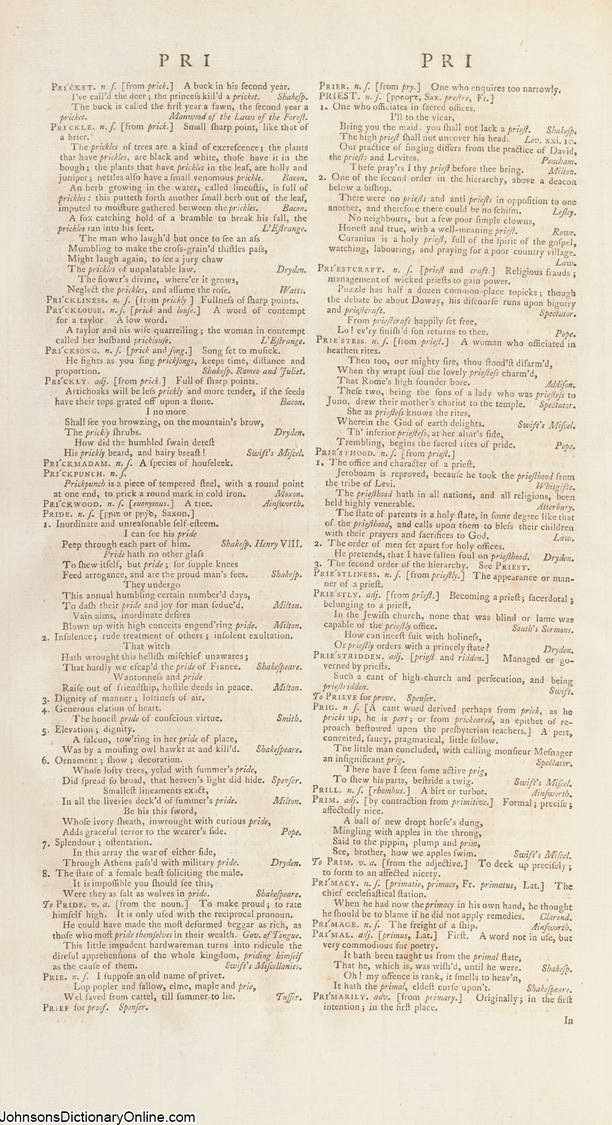 P R I
PRI'CKET. n. ſ. [from prick.] A buck in his second year.
I've call'd the deer; the princeſs kill'd a pricket. Shakeſp.
The buck is called the firſt year a fawn, the ſecond year a
pricket. Manwood of the Laws of the Foreſt.
PRI'CKLE. n. ſ. [from prick.] Small ſharp point, like that of
a brier.
The prickles of trees are a kind of excreſcence; the plants
that have prickles, are black and white, thoſe have it in the
bough; the plants that have prickles in the leaf, are holly and
juniper; nettles alſo have a ſmall venomous prickle. Bacon.
An herb growing in the water, called lincoſtis, is full of
prickles: this putteth forth another ſmall herb out of the leaf,
imputed to moiſture gathered between the prickles. Bacon.
A fox catching hold of a bramble to break his fall, the
prickles ran into his feet. L'Eſtrange.
The man who laugh'd but once to ſee an aſs
Mumbling to make the croſs-grain'd thiſtles paſs,
Might laugh again, to ſee a jury chaw
The prickles of unpalatable law. Dryden.
The flower's divine, where'er it grows,
Neglect the prickles, and aſſume the roſe. Watts.
PRI'CKLINESS. n. ſ. [from prickly] Fullneſs of ſharp points.
PRI'CKLOUSE. n. ſ. [prick and louſe.] A word of contempt
for a taylor. A low word.
A taylor and his wife quarrelling; the woman in contempt
called her huſband pricklouſe. L'Eſtrange.
PRI'CKSONG. n. ſ. [prick and ſong.] Song ſet to muſick.
He fights as you ſing prickſongs, keeps time, diſtance and
proportion. Shakeſp. Romeo and Juliet.
PRI'CKLY. adj. [from prick] Full of ſharp points.
Artichoaks will be leſs prickly and more tender, if the ſeeds
have their tops grated off upon a ſtone. Bacon.
I no more
Shall ſee you browzing, on the mountain's brow,
The prickly ſhrubs. Dryden.
How did the humbled ſwain deteſt
His prickly beard, and hairy breaſt! Swift's Miſcel.
PRI'CKMADAM. n. ſ. A ſpecies of houſeleek.
PRI'CKPUNCH. n. ſ.
Prickpunch is a piece of tempered ſteel, with a round point
at one end, to prick a round mark in cold iron. Moxon.
PRI'CKWOOD. n. ſ. [euonymus.] A tree. Ainſworth.
PRIDE. n. ſ. [Saxon.]
1. Inordinate and unreaſonable ſelf-eſteem.
I can ſee his pride
Peep through each part of him. Shakeſp. Henry VIII.
Pride hath no other glaſs
To ſhew itſelf, but pride; for ſupple knees
Feed arrogance, and are the proud man's fees. Shakeſp.
They undergo
This annual humbling certain number'd days,
To daſh their pride and joy for man ſeduc'd. Milton.
Vain aims, inordinate deſires
Blown up with high conceits engend'ring pride. Milton.
2. Inſolence; rude treatment of others; inſolent exultation.
That witch
Hath wrought this helliſh miſchief unawares;
That hardly we eſcap'd the pride of France. Shakeſpeare.
Wantonneſs and pride
Raiſe out of friendſhip, hoſtile deeds in peace. Milton.
3. Dignity of manner; loftineſs of air.
4. Generous elation of heart.
The honeſt pride of conſcious virtue. Smith.
5. Elevation; dignity.
A falcon, tow'ring in her pride of place,
Was by a mouſing owl hawkt at and kill'd. Shakeſpeare.
6. Ornament; ſhow; decoration.
Whoſe lofty trees, yclad with ſummer's pride,
Did ſpread ſo broad, that heaven's light did hide. Spenſer.
Smalleſt lineaments exact,
In all the liveries deck'd of ſummer's pride. Milton.
Be his this ſword,
Whoſe ivory ſheath, inwrought with curious pride,
Adds graceful terror to the wearer's ſide. Pope.
7. Splendour; oſtentation.
In this array the war of either ſide,
Through Athens paſs'd with military pride. Dryden.
8. The ſtate of a female beaſt ſoliciting the male.
It is impoſſible you ſhould ſee this,
Were they as ſalt as wolves in pride. Shakeſpeare.
To PRIDE. v. a. [from the noun.] To make proud; to rate
himſelf high. It is only uſed with the reciprocal pronoun.
He could have made the moſt deformed beggar as rich, as
thoſe who moſt pride themſelves in their wealth. Gov. of Tongue.
This little impudent hardwareman turns into ridicule the
direful apprehenſions of the whole kingdom, priding himſelf
as the cauſe of them. Swift's Miſcellanies.
PRIE. n. ſ. I ſuppoſe an old name of privet.
Lop popler and ſallow, elme, maple and prie,
Wel ſaved from cattel, till ſummer to lie. Tuſſer.
PRIEF for proof. Spenſer.
P R I
PRIER. n. ſ. [from pry.] One who enquires too narrowly.
PRIEST. n. ſ. [Sax. preſtre, Fr.]
1. One who officiates in ſacred offices.
I'll to the vicar,
Bring you the maid, you ſhall not lack a prieſt. Shakeſp.
The high prieſt ſhall not uncover his head. Lev. xxi. 10.
Our practice of ſinging differs from the practice of David,
the prieſts and Levites. Peacham.
Theſe pray'rs I thy prieſt before thee bring. Milton.
2. One of the ſecond order in the hierarchy, above a deacon
below a biſhop.
There were no prieſts and anti prieſts in oppoſition to one
another, and therefore there could be no ſchiſm. Leſley.
No neighbours, but a few poor ſimple clowns,
Honeſt and true, with a well-meaning prieſt. Rowe.
Curanius is a holy prieſt, full of the ſpirit of the goſpel,
watching, labouring, and praying for a poor country village.
Law.
PRI'ESTCRAFT. n. ſ. [prieſt and craft] Religious frauds;
management of wicked prieſts to gain power.
Puzzle has half a dozen common-place topicks; though
the debate be about Doway, his diſcourſe runs upon bigotry
and prieſtcraft. Spectator.
From prieſtcraft happily ſet free,
Lo! ev'ry finiſh'd ſon returns to thee. Pope.
PRIE'STESS. n. ſ. [from prieſt.] A woman who officiated in
heathen rites.
Then too, our mighty fire, thou ſtood'ſt diſarm'd,
When thy wrapt ſoul the lovely prieſteſs charm'd,
That Rome's high founder bore. Addiſon.
Theſe two, being the ſons of a lady who was prieſteſs to
Juno, drew their mother's chariot to the temple. Spectator.
She as prieſteſs knows the rites,
Wherein the God of earth delights. Swift's Miſcel.
Th' inferior prieſteſs, at her altar's ſide,
Trembling, begins the ſacred rites of pride. Pope.
PRIE'STHOOD. n. ſ. [from prieſt.]
1. The office and character of a prieſt.
Jeroboam is reproved, becauſe he took the prieſthood from
the tribe of Levi. Whitgifte.
The prieſthood hath in all nations, and all religions, been
held highly venerable. Atterbury.
The ſtate of parents is a holy ſtate, in ſome degree like that
of the prieſthood, and calls upon them to bleſs their children
with their prayers and ſacrifices to God. Law.
2. The order of men ſet apart for holy offices.
He pretends, that I have fallen foul on prieſthood. Dryden.
3. The ſecond order of the hierarchy. See PRIEST.
PRIE'STLINESS. n. ſ. [from prieſtly.] The appearance or man-
ner of a prieſt.
PRIE'STLY. adj. [from prieſt.] Becoming a prieſt; ſacerdotal;
belonging to a prieſt.
In the Jewiſh church, none that was blind or lame was
capable of the prieſtly office. South's Sermons.
How can inceſt ſuit with holineſs,
Or prieſtly orders with a princely ſtate? Dryden.
PRIE'STRIDDEN. adj. [prieſt and ridden.] Managed or go-
verned by prieſts.
Such a cant of high-church and perſecution, and being
prieſtridden. Swift.
To PRIEVE for prove. Spenſer.
PRIG. n. ſ. [A cant word derived perhaps from prick, as he
pricks up, he is pert; or from prickeared, an epithet of re-
proach beſtowed upon the preſbyterian teachers.] A pert,
conceited, ſaucy, pragmatical, little fellow.
The little man concluded, with calling monſieur Meſnager
an inſignificant prig. Spectator.
There have I ſeen ſome active prig,
To ſhew his parts, beſtride a twig. Swift's Miſcel.
PRILL. n. ſ. [rhombus.] A birt or turbot. Ainſworth.
PRIM. adj. [by contraction from primitive.] Formal; preciſe;
affectedly nice.
A ball of new dropt horſe's dung,
Mingling with apples in the throng,
Said to the pippin, plump and prim,
See, brother, how we apples ſwim. Swift's Miſcel.
To PRIM. v. a. [from the adjective.] To deck up preciſely;
to form to an affected nicety.
PRI'MACY. n. ſ. [primatie, primace, Fr. primatus, Lat.] The
chief eccleſiaſtical ſtation.
When he had now the primacy in his own hand, he thought
he ſhould be to blame if he did not apply remedies. Clarend.
PRI'MAGE. n. ſ. The freight of a ſhip. Ainſworth.
PRI'MAL. adj. [primus, Lat.] Firſt. A word not in uſe, but
very commodious for poetry.
It hath been taught us from the primal ſtate,
That he, which is, was wiſh'd, until he were. Shakeſp.
Oh! my offence is rank, it ſmells to heav'n,
It hath the primal, eldeſt curſe upon't. Shakeſpeare.
PRI'MARILY. adv. [from primary.] Originally; in the firſt
intention; in the firſt place.
In
JohnsonsDictionaryOnline.com